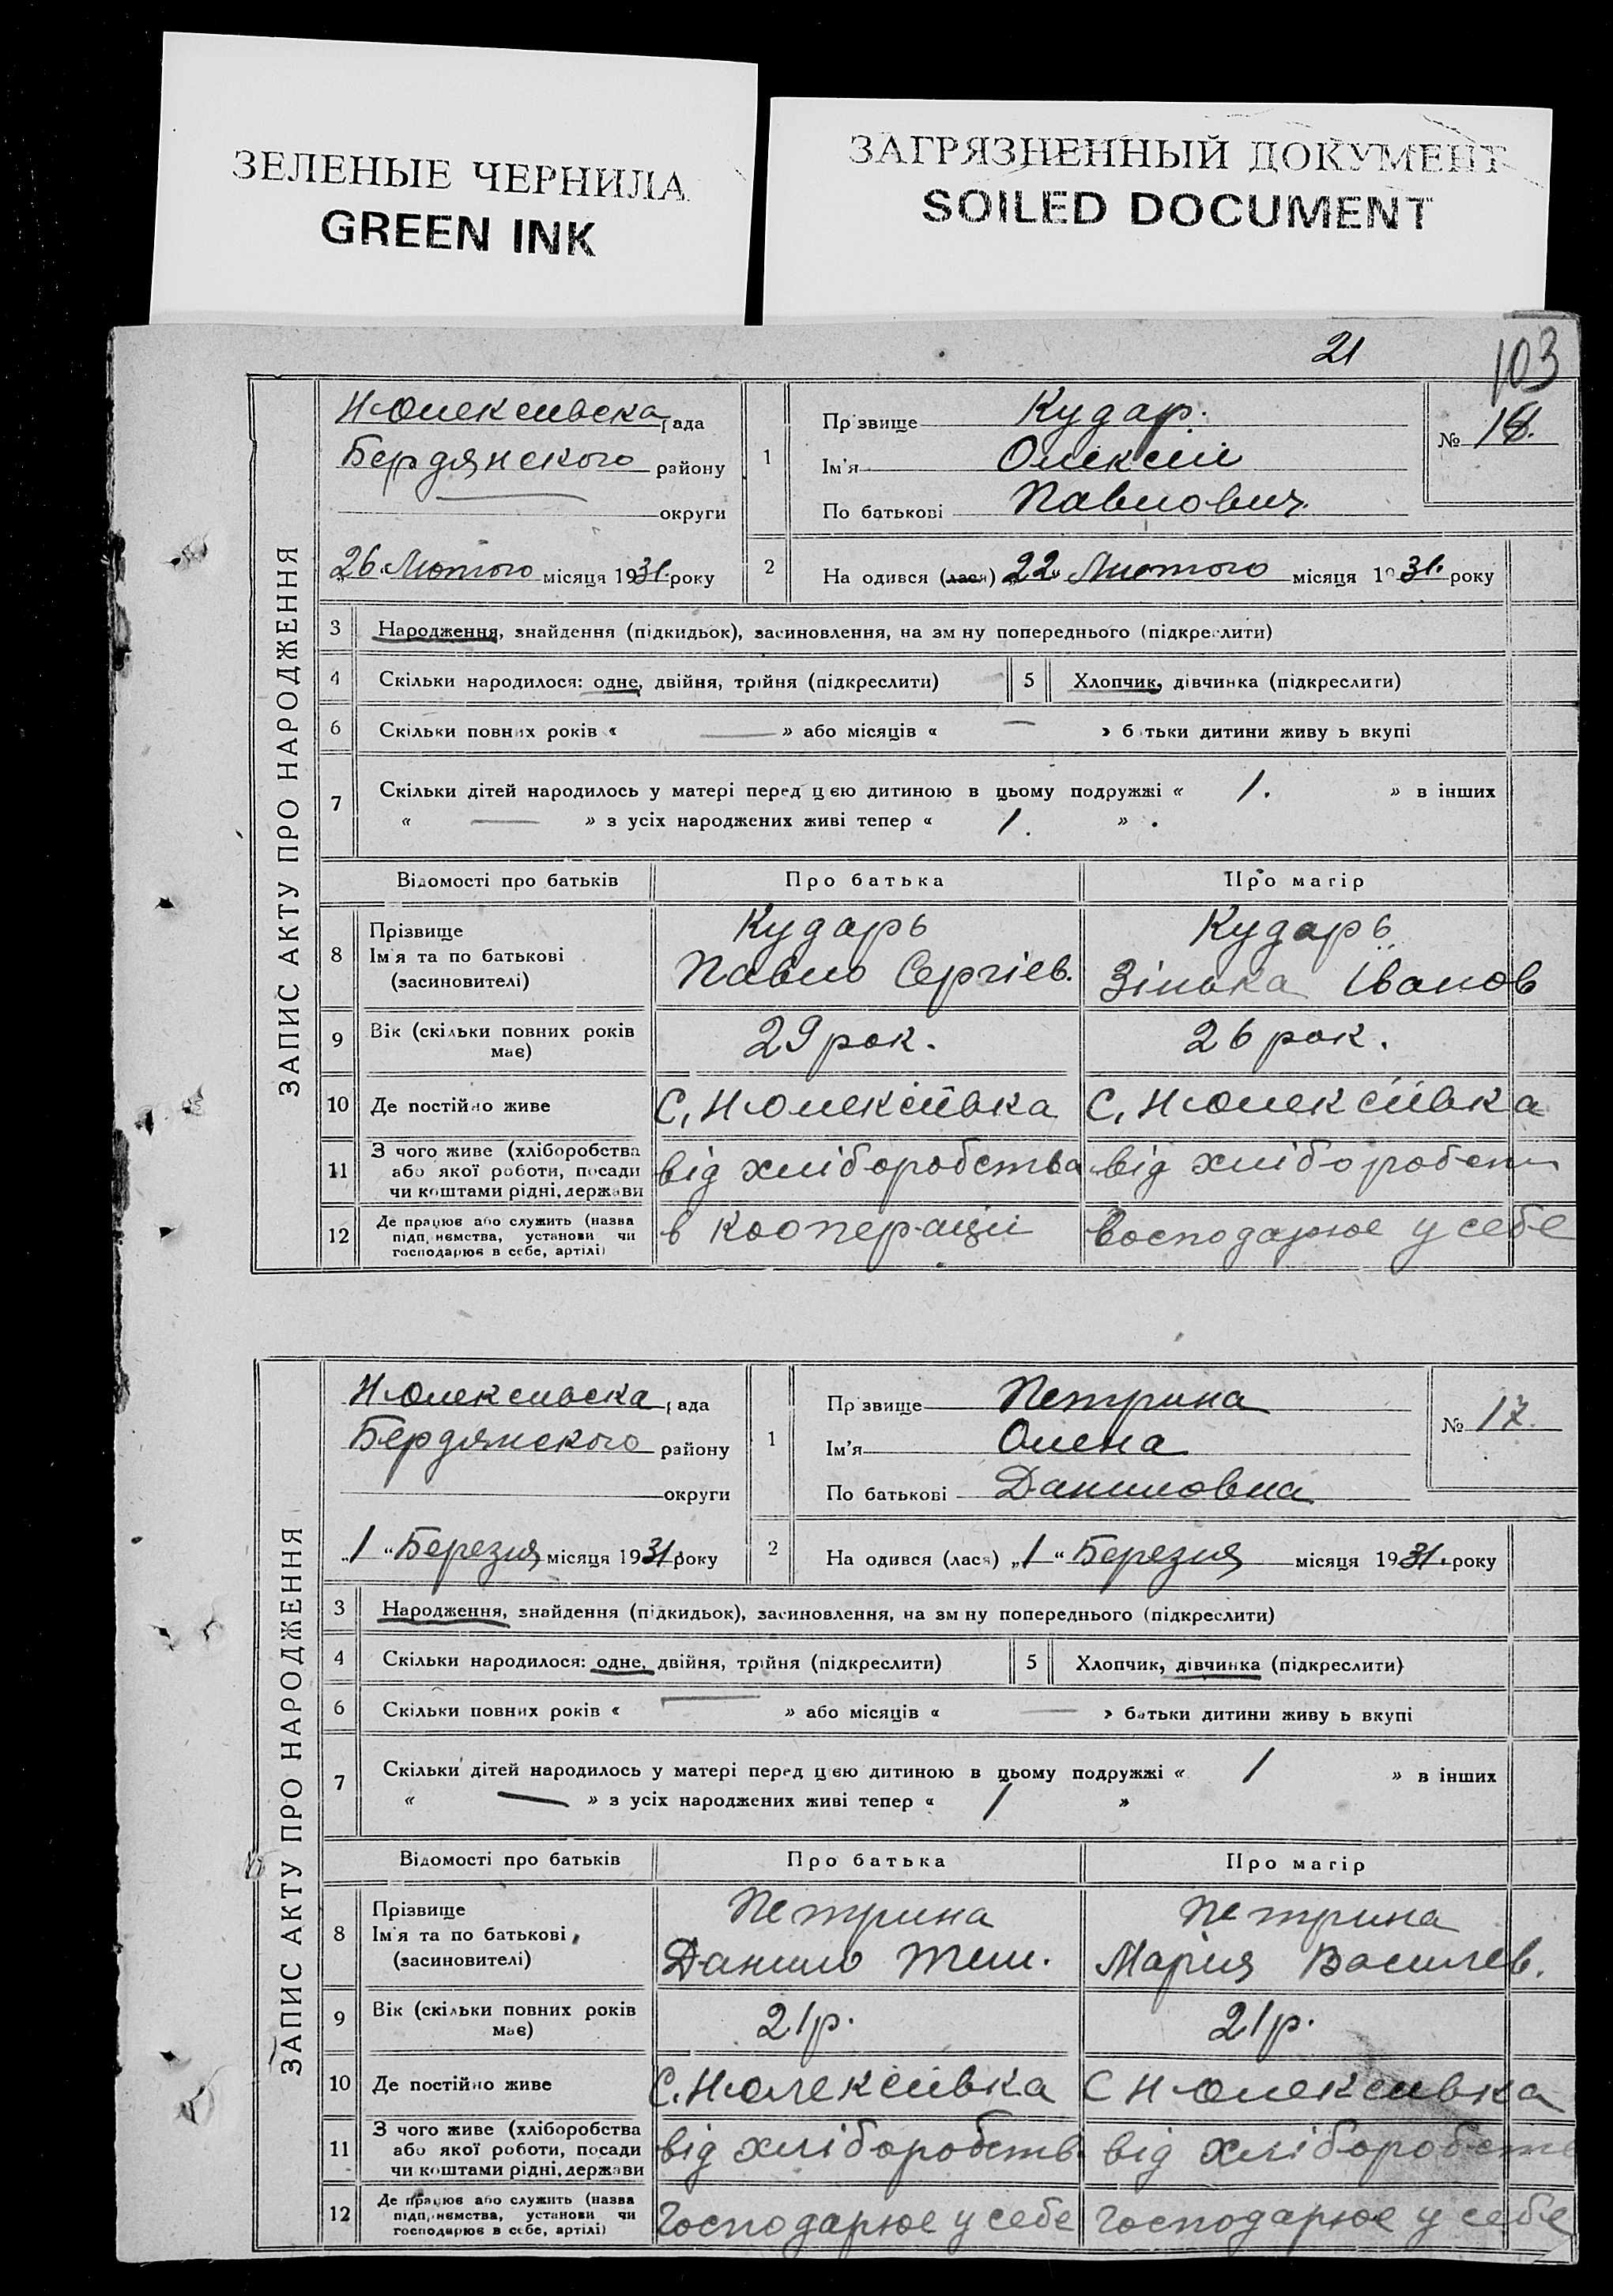 ЗЕЛЕНЫЕ ЧЕРНИЛА
GREEN INK
ЗАГРЯЗНЕННЫЙ ДОКУМЕНТ
SOILED DOCUMENT
21
103
ЗАПИС АКТУ ПРО НАРОДЖЕННЯ
Н-Олексиевска рада
Бердянского району
округи
26 Лютого місяця 1931 року
1
Прізвище Кудар.
Ім'я Олексій
По батькові Павлович.
№
2
На одився (лася) „22" Лютого місяця 1931. року
3 Народження, знайдення (підкидьок), засиновлення, на зм ну попереднього (підкреслити)
4 Скільки народилося: одне, двійня, трійня (підкреслити) 5 Хлопчик, дівчинка (підкреслити)
6 Скільки повних років « — » або місяців « — » батьки дитини живу ь вкупі
7 Скільки дітей народилось у матері перед цією дитиною в цьому подружжі « 1. » в інших
« — » з усіх народжених живі тепер « 1. » .
Відомості про батьків Про батька Про матір
8 Прізвище
Ім'я та по батькові
(засиновителі)
Кударь
Павло Сергіев.
Кударь
Зінька Іванов
9 Вік (скільки повних років має) 29 рок. 26 рок.
10 Де постійно живе С, Н-Олексіївка С, Н-Олексіївка
11 З чого живе (хліборобства
або якої роботи, посади
чи коштами рідні, держави
від хліборобства від хлібороб
12 Де працює або служить (назва
підприємства, установи чи
господарює в себе, артілі)
в кооперації Господарює у себе
ЗАПИС АКТУ ПРО НАРОДЖЕННЯ
Н-Олексиевска рада
Бердянского району
округи
„1" Березня місяця 1931 року
1
Прізвище Петрина
Ім'я Олена
По батькові Даниловна
№ 17.
2
На одився (лася) „1" Березня місяця 1931. року
3 Народження, знайдення (підкидьок), засиновлення, на зм ну попереднього (підкреслити)
4 Скільки народилося: одне, двійня, трійня (підкреслити) 5 Хлопчик, дівчинка (підкреслити)
6 Скільки повних років « — » або місяців « — » батьки дитини живу ь вкупі
7 Скільки дітей народилось у матері перед цією дитиною в цьому подружжі « 1 » в інших
« — » з усіх народжених живі тепер « 1 »
Відомості про батьків Про батька Про матір
8 Прізвище
Ім'я та по батькові
(засиновителі)
Петрина
Данило
Петрина
Мария Василев.
9 Вік (скільки повних років має) 21 р. 21 р.
10 Де постійно живе С. Н-Олексіївка С Н-Олексиівка
11 З чого живе (хліборобства
або якої роботи, посади
чи коштами рідні, держави
від хліборобств. від хліборобств
12 Де працює або служить (назва
підприємства, установи чи
господарює в себе, артілі)
Господарює у себе Господарює у себе